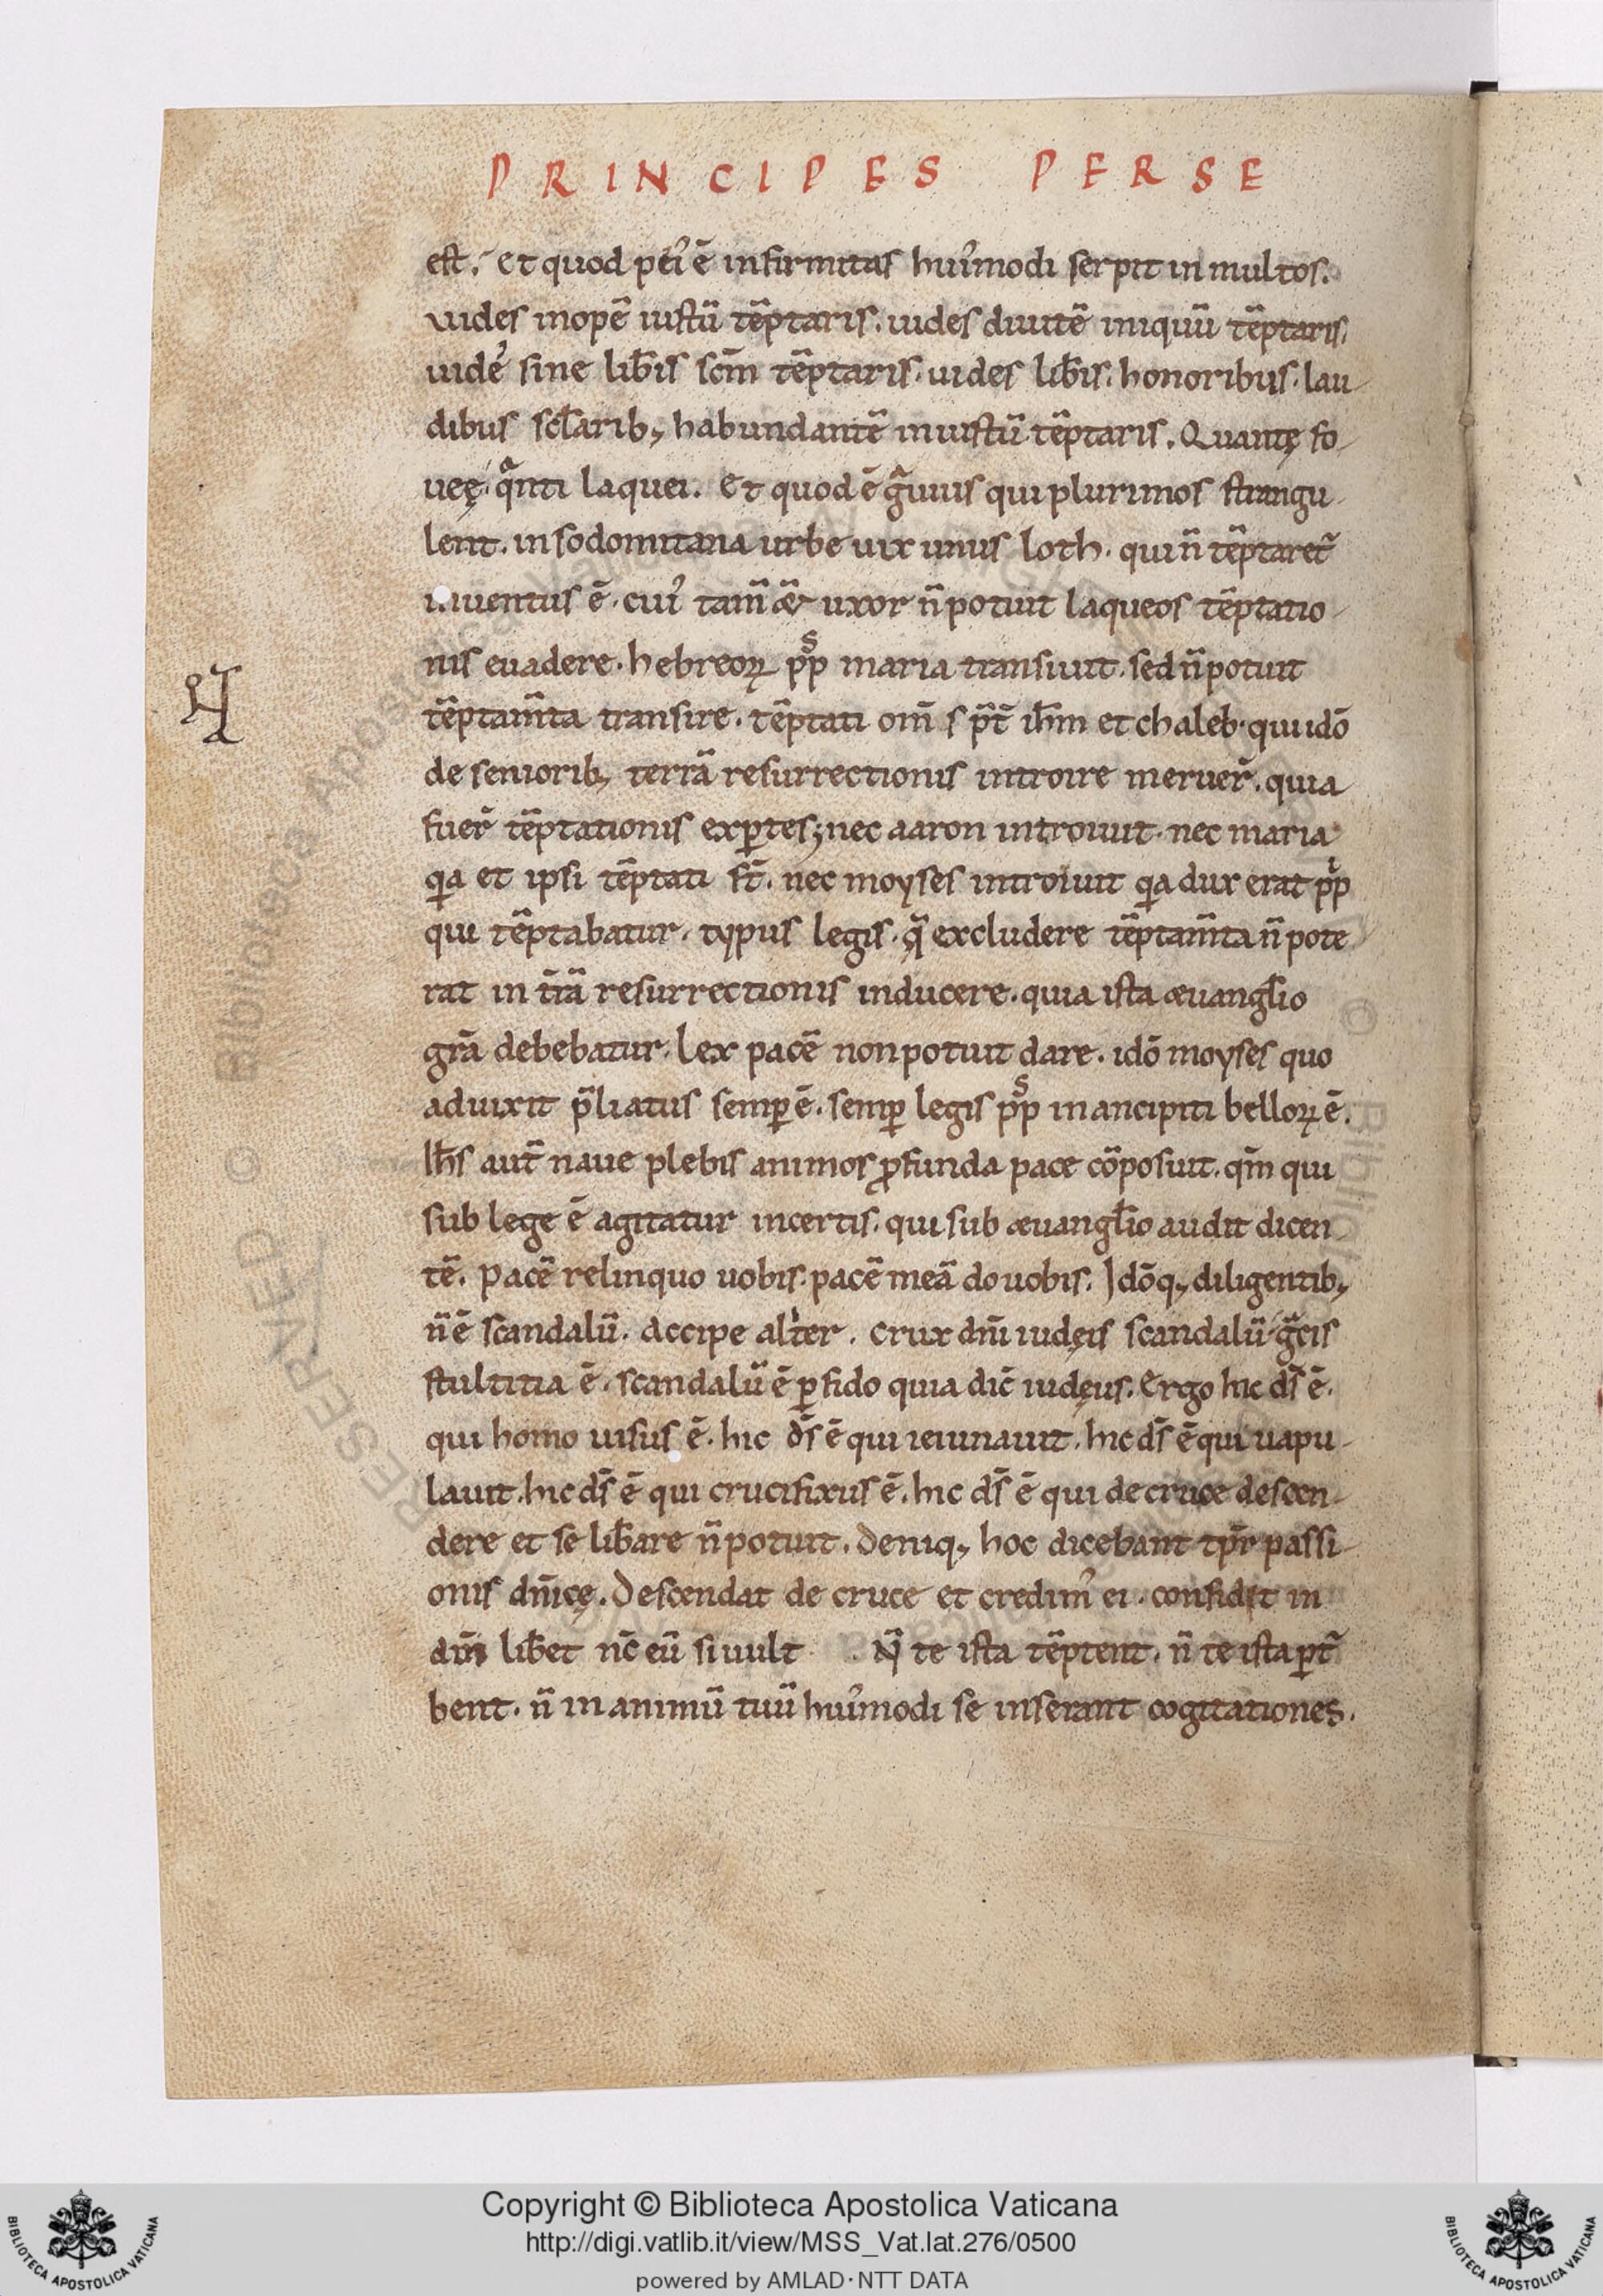 PRINCIPES PERSE
est. et quod pei᾽ ē infirmitas hui᾽modi serpit in multos.
uides inopē iustū tēptaris. uides diuitē iniquū tēptaris.
uide᾽ sine lib̄is scm̄ tēptaris. uides lib̄is. honoribus. lau-
dibus sc̄larib; habundantē iniustū tēptaris. Quantę fo-
ueę. qͣnti laquei. Et quod ē gͣuius qui plurimos strangu-
lent. in sodomitana urbe uix unus loth. qui n̄ tēptaret᷑
inuentus ē. cui᾽ tam̄ & uxor n̄ potuit laqueos tēptatio-
nis euadere. hebreoꝝ pp̄s maria transiuit. sed n̄ potuit
tēptam̄ta transire. tēptati om̄s p̄t ih̄m et chaleb. qui idō
de seniorib; terrā resurrectionis introire meruer̄. quia
fuer̄ tēptationis exp̱tes; nec aaron introiuit. nec maria
qa et ipsi tēptati st̄. nec moyses introiuit qa dux erat pp̄i
qui tēptabatur. typus legis. q̄ excludere tēptam̄ta n̄ pote-
rat in t̄rā resurrectionis inducere. quia ista æuangl̄io
grā debebatur. Lex pacē non potuit dare. idō moyses quo
aduixit p̄liatus semp̱ ē. semp̱ legis pp̄s in ancipiti belloꝝ ē.
Ih̄s aut̄ naue plebis animos ꝓfunda pace cōposuit. qm̄ qui
sub lege ē agitatur incertis. qui sub æuangl̄io audit dicen-
tē. Pacē relinquo uobis. pacē meā do uobis. Idōq; diligentib;
n̄ ē scandalū. Accipe alit̄er. Crux dn̄i iudęis scandalū. gͣcis
stultitia ē. scandalū ē p̱fido quia dic̄ iudęus. Ergo hic ds̄ ē.
qui homo uisus ē. hic ds̄ ē qui ieiunauit. hic ds̄ ē qui uapu-
lauit. hic ds̄ ē qui crucifixus ē. hic ds̄ ē qui de cruce descen-
dere et se lib̄are n̄ potuit. Deniq; hoc dicebant tp̄r passi-
onis dn̄icę. Descendat de cruce et credim᾽ ei. confidit in
dm̄ lib̄et nc̄ eū si uult. N̄ te ista tēptent. n̄ te ista p̱t̄
bent. n̄ in animū tuū hui᾽modi se inserant cogitationes.
Copyright © Biblioteca Apostolica Vaticana
http://digi.vatlib.it/view/MSS_Vat.lat.276/0500
powered by AMLAD·NTT DATA
BIBLIOTECA APOSTOLICA VATICANA
BIBLIOTECA APOSTOLICA VATICANA